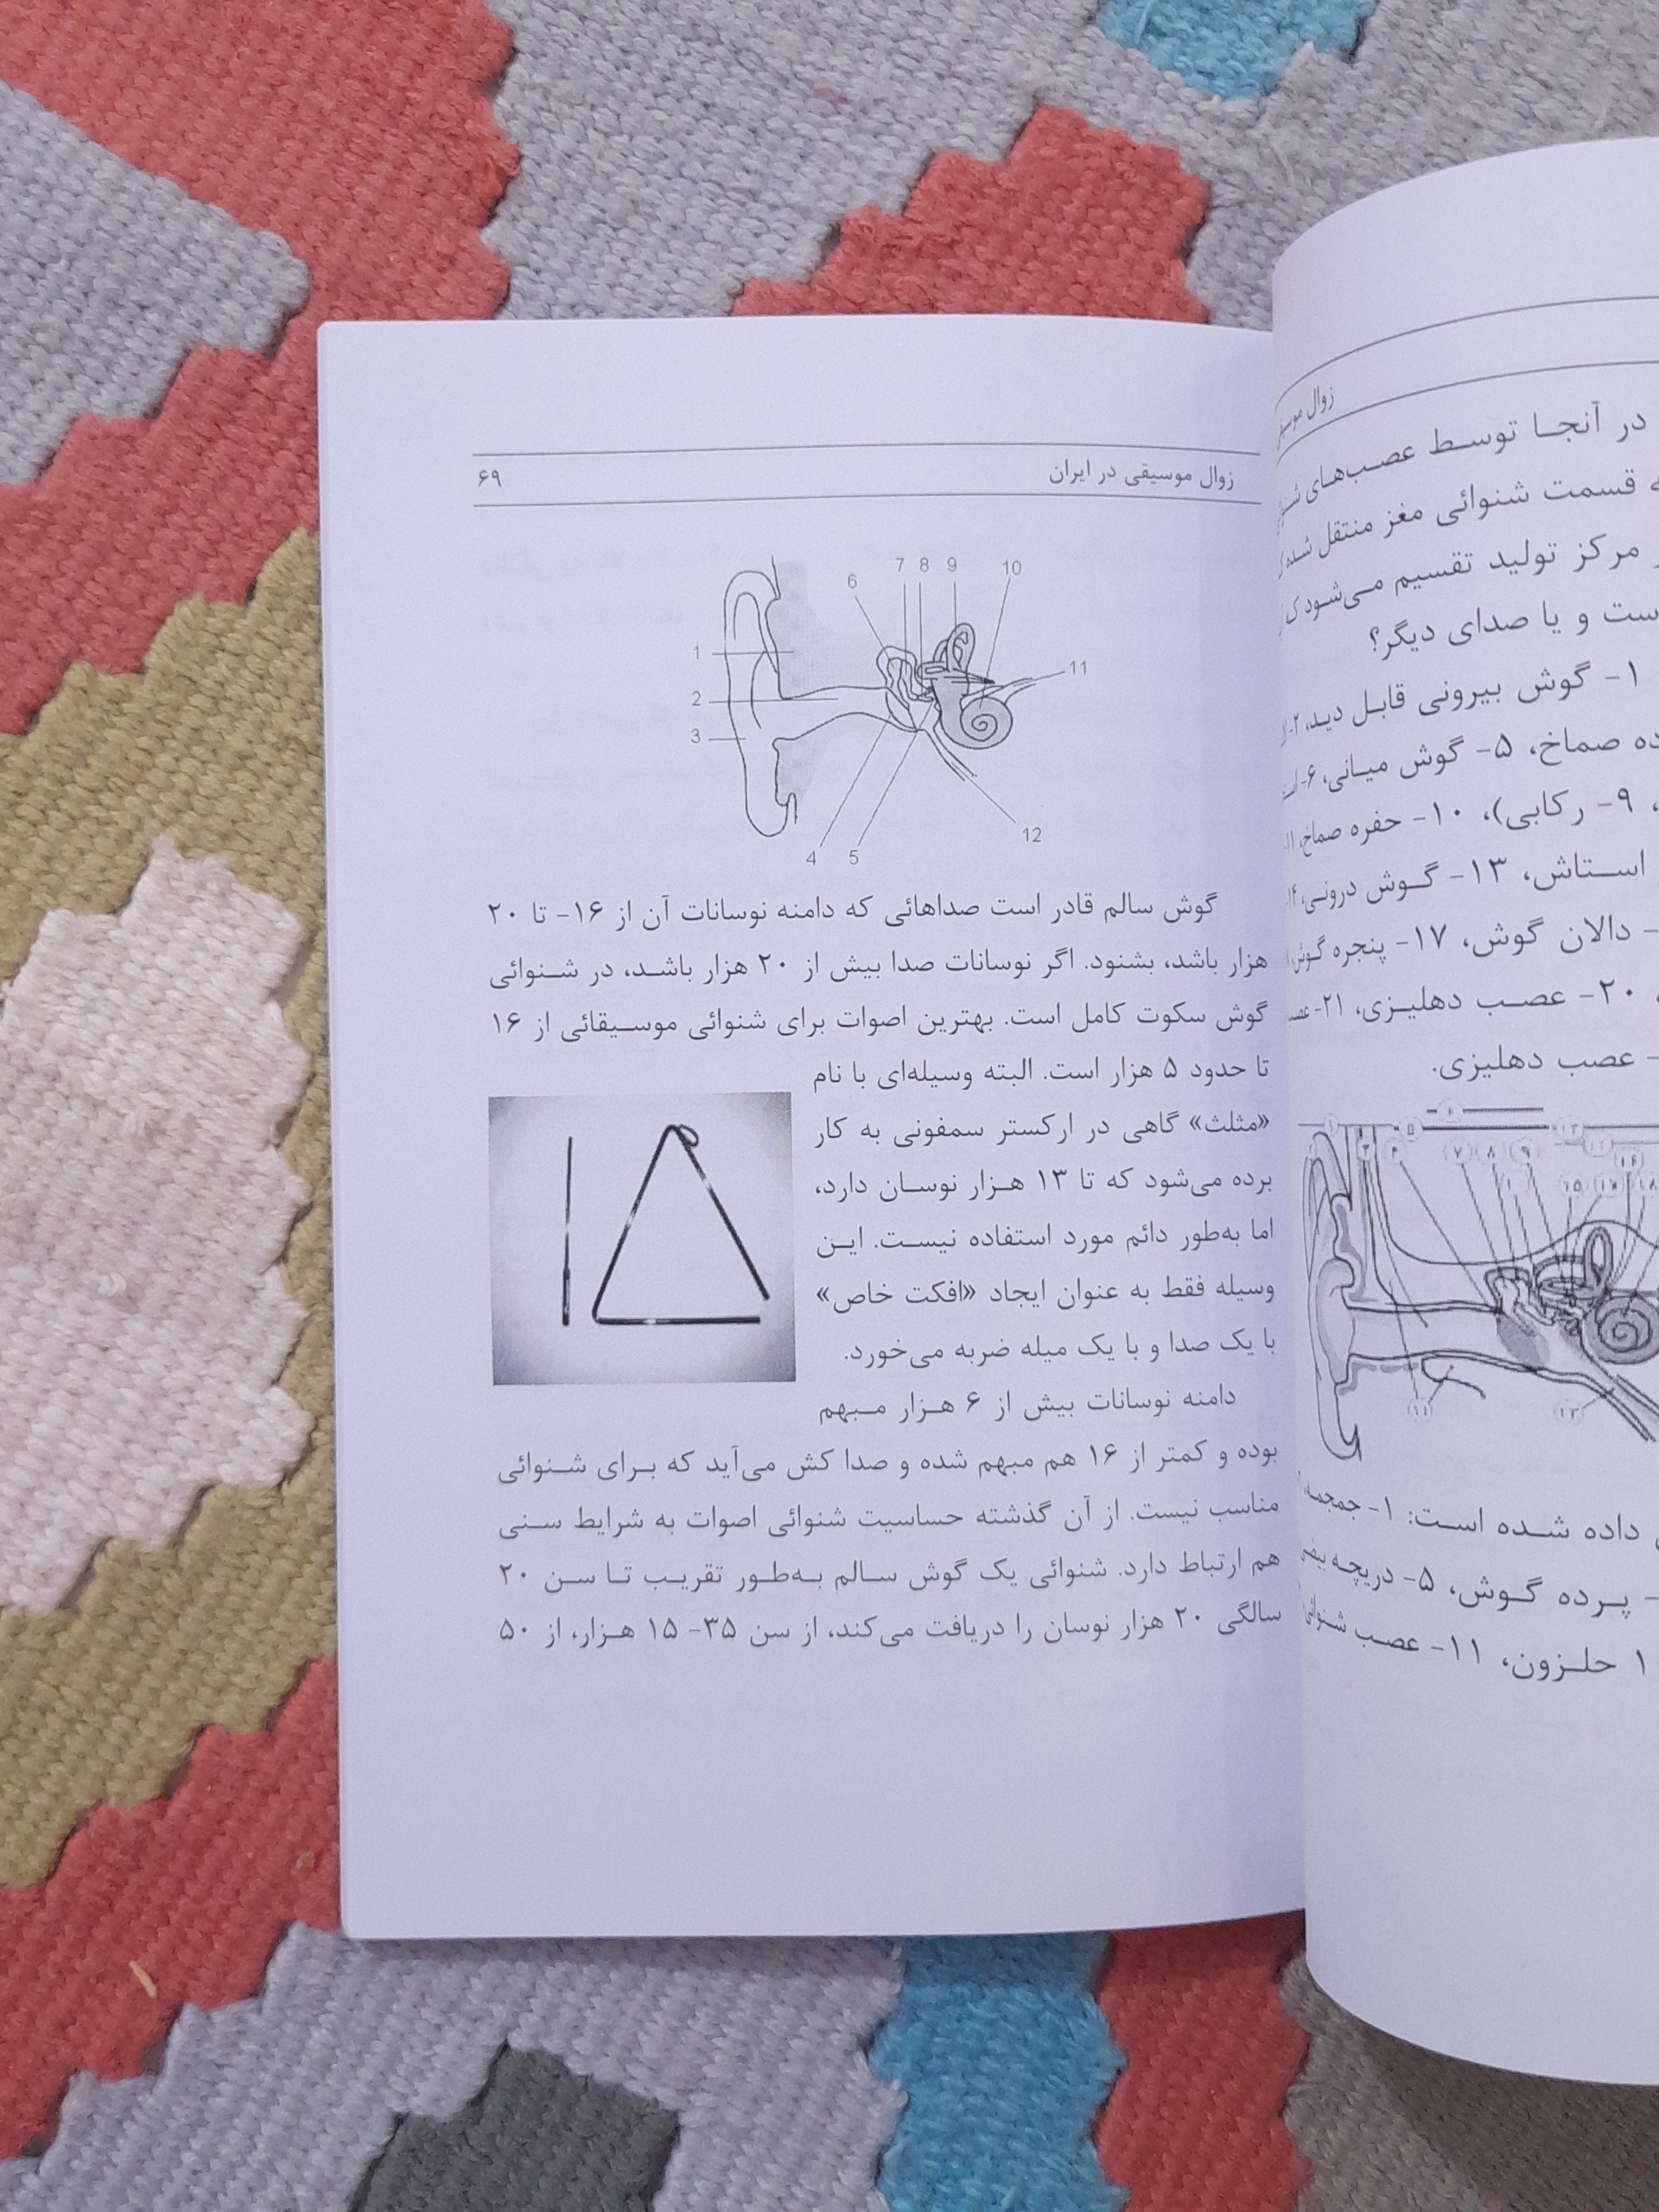 زوال موسیقی در ایران ۶۹
6 7 8 9 10
1
11
2
3
12
4 5
گوش سالم قادر است صداهائی که دامنه نوسانات آن از ۱۶- تا ۲۰
هزار باشد، بشنود. اگر نوسانات صدا بیش از ۲۰ هزار باشـد، در شـنوائی
گوش سکوت کامل است. بهترین اصوات برای شنوائی موسـیقائی از ۱۶
تا حدود ۵ هزار است. البته وسیله‌ای با نام
«مثلث» گاهی در ارکستر سمفونی به کار
برده می‌شود که تا ۱۳ هـزار نوسـان دارد،
اما به‌طور دائم مورد استفاده نیسـت. ایـن
وسیله فقط به عنوان ایجاد «افکت خاص»
با یک صدا و با یک میله ضربه می‌خورد.
دامنه نوسانات بیش از ۶ هـزار مـبهم
بوده و کمتر از ۱۶ هم مبهم شده و صدا کش می‌آید که بـرای شـنوائی
مناسب نیست. از آن گذشته حساسیت شنوائی اصوات به شرایط سـنی
هم ارتباط دارد. شنوائی یک گوش سـالم بـه‌طـور تقریـب تـا سـن ۲۰
سالگی ۲۰ هزار نوسان را دریافت می‌کند، از سن ۳۵- ۱۵ هـزار، از ۵۰
زوال
در آنجـا توسـط عصـب‌هـای
قسمت شنوائی مغز منتقل شده
مرکز تولید تقسیم مـی‌شـود
و یا صدای دیگر؟
۱- گوش بیرونی قابـل دیـد، ۲-
صماخ، ۵- گوش میـانی، ۶-
۹- رکابی)، ۱۰- حفره صماخ،
اسـتاش، ۱۳- گـوش درونـی،
- دالان گوش، ۱۷- پنجره
۲۰- عصـب دهلیـزی، ۲۱-
- عصب دهلیزی.
۷ ۸ ۹
داده شـده اسـت: ۱- جمجمه،
- پـرده گـوش، ۵- دریچه
حلـزون، ۱۱- عصـب